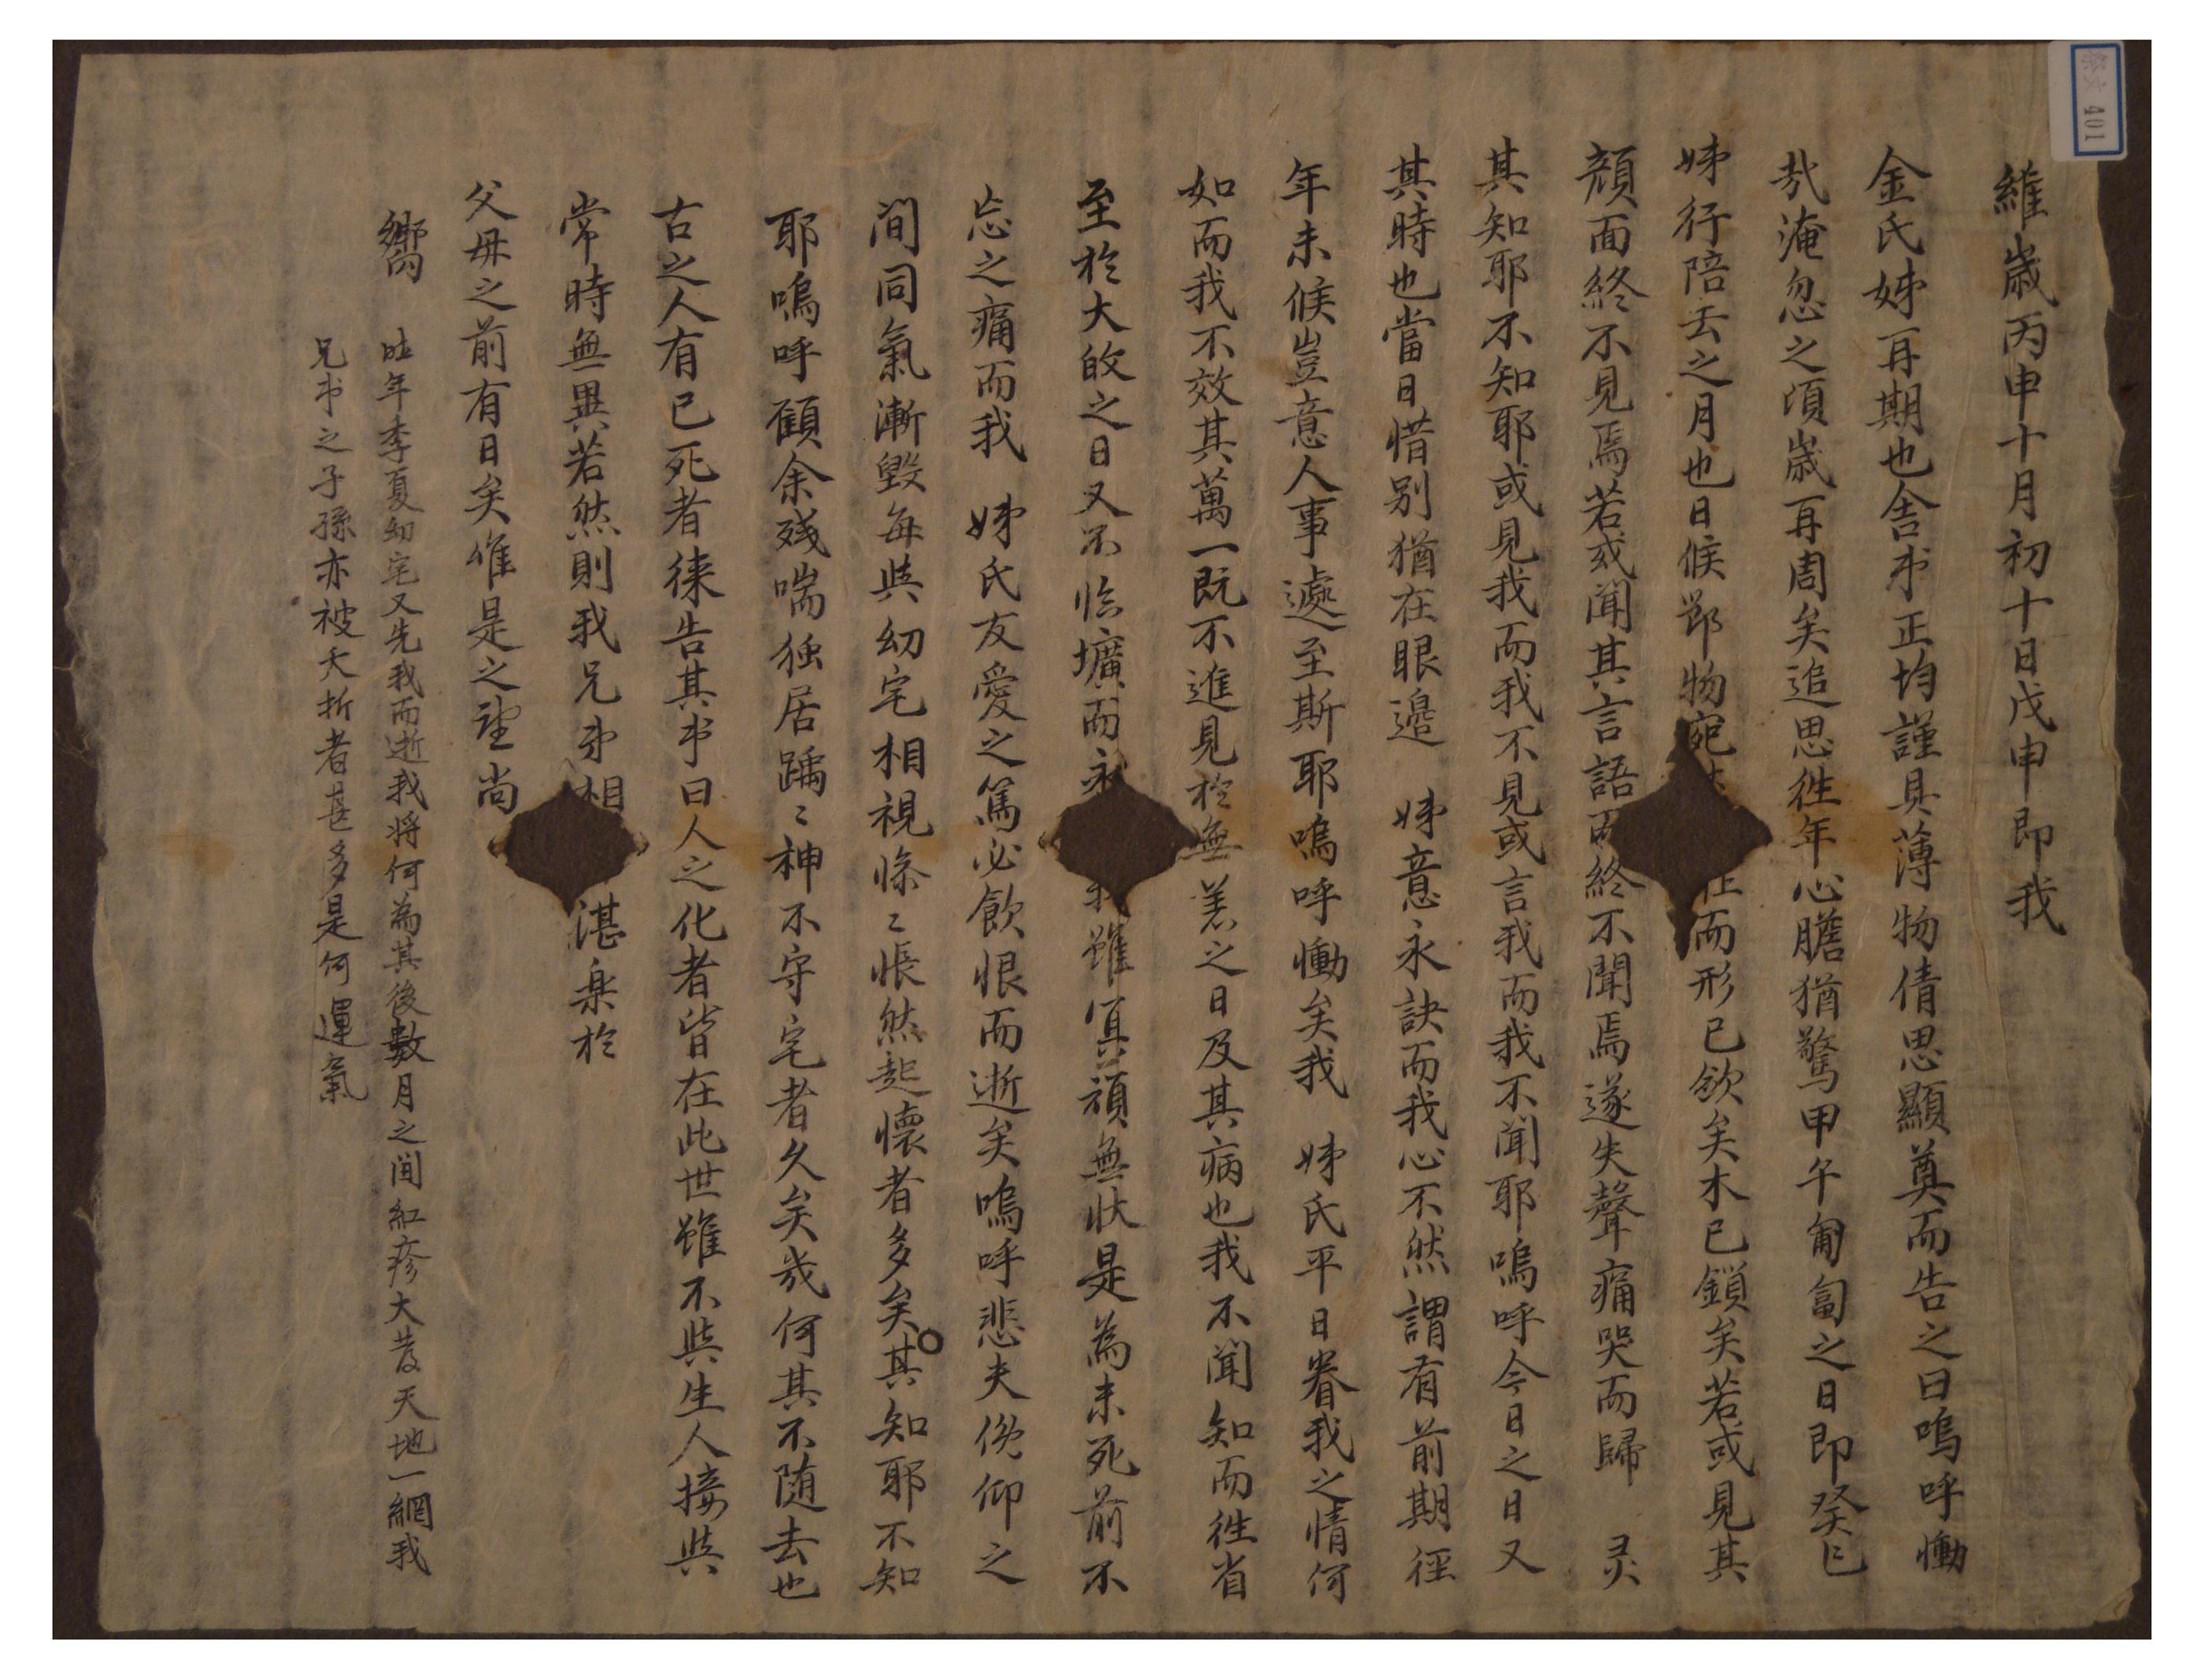 維歲丙申十月初十日戊申即我
金氏姊再期也舍弟正均謹具薄物倩思顯奠而告之曰嗚呼慟
哉淹忽之頃歲再周矣追思徃年心膽猶驚甲午匍匐之日即癸巳
姊行陪去之月也日候部物宛 在而形已斂矣木已鎖矣若或見其
顔面終不見焉若或聞其言語而終不聞焉遂失聲痛哭而歸 灵
其知耶不知耶或見我而我不見或言我而我不聞耶嗚呼今日之日又
其時也當日惜別猶在眼邉 姊意永訣而我心不然謂有前期徑
年未候豈意人事遽至斯耶嗚呼慟矣我 姊氏平日眷我之情何
如而我不效其萬一既不進見於無恙之日及其病也我不聞知而徃省
至於大斂之日又不臨壙而永 我雖冥頑無狀是為未死前不
忘之痛而我 姊氏友愛之篤必飮恨而逝矣嗚呼悲夫俛仰之
間同氣漸毀每與幼宅相視悠〻悵然起懷者多矣其知耶不知
耶嗚呼顧余殘喘独居踽〻神不守宅者久矣㡬何其不随去也
古之人有已死者徠告其弟曰人之化者皆在此世雖不與生人接與
常時無異若然則我兄弟相 湛楽於
父母之前有日矣惟是之望尚
嚮 昨年季夏幼宅又先我而逝我將何為其後數月之間紅疹大發天地一網我
兄弟之子孫亦被夭折者甚多是何運氣
401